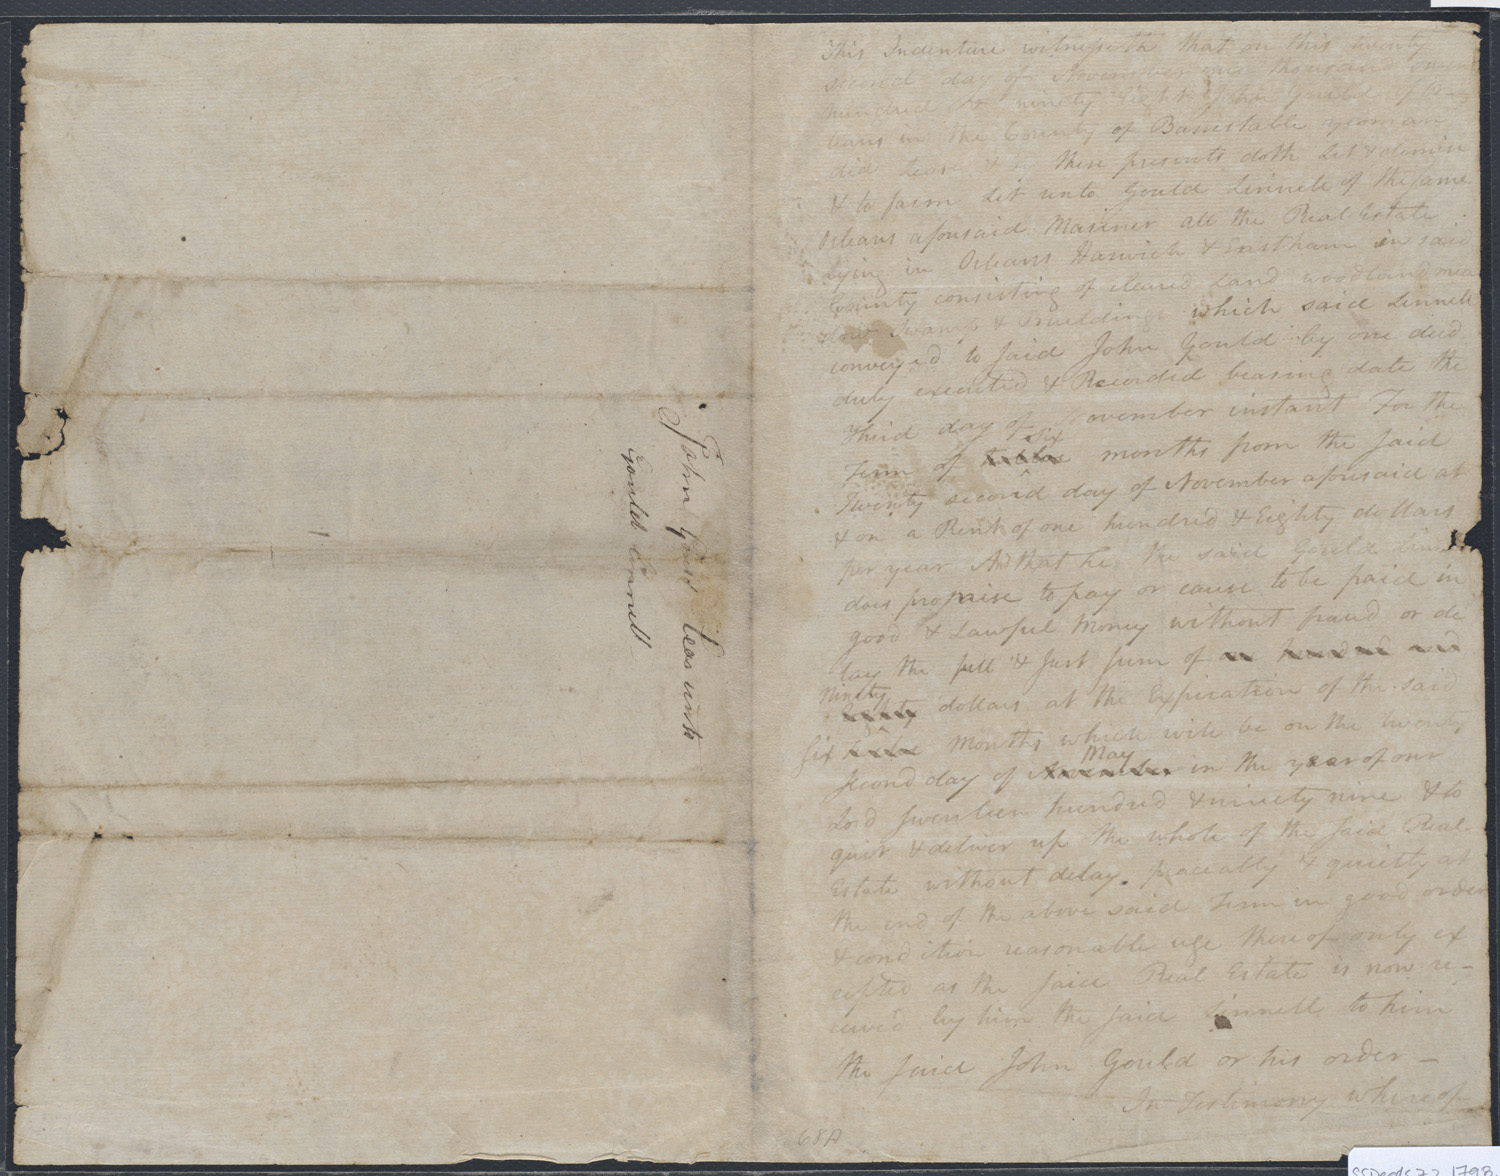 John Gould Leas unto
Gould Linnell
This Indenture witnesseth that on this twenty
second day of November one thousand seven
hundred & ninety Eight John Gould of Or
leans in the County of Barnstable yeoman
did Lease & by these presents doth Let & demise
& to farm Let unto Gould Linnele of the same
Orleans aforesaid Mariner all the Real Estate
Lying in Orleans Harwich & Eastham in said
County consisting of cleared Land woodland mea
dow Swamp & Buildings which said Linnell
conveyed to said John Gould by one deed
duly executed & Recorded bearing date the
third day of November instant For the
six
Term of months from the said
Twenty second day of November aforesaid at
& on a Rent of one hundred & Eighty dollars
per year And that he the said Gould Linnell
does promise to pay or cause to be paid in
good & Lawful Money without fraud or de
lay the full & Just sum of a hundred and
Ninety
Eighty dollars at the Expiration of the said
six months which will be on the twenty
May
second day of November in the year of our
Lord seventeen hundred & ninety nine & to
quit & deliver up the whole of the said Real
Estate without delay peaceably & quietly at
the end of the above said Term in good order
& condition reasonable use thereof only ex
cepted as the said Real Estate is now re-
ceived by him the said Linnell to him
the said John Gould or his order —
In Testimony whereof
68A